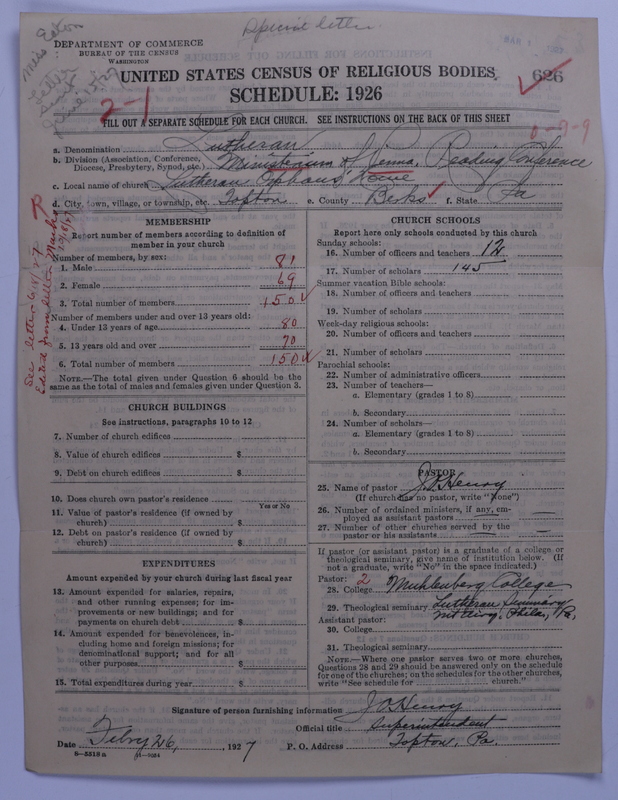 Special letter
Miss Eaton
Letter
June 15, 27
DEPARTMENT OF COMMERCE
BUREAU OF THE CENSUS
WASHINGTON
UNITED STATES CENSUS OF RELIGIOUS BODIES
626
SCHEDULE: 1926
2-1
FILL OUT A SEPARATE SCHEDULE FOR EACH CHURCH. SEE INSTRUCTIONS ON THE BACK OF THIS SHEET
0-7-9
a. Denomination Lutheran
b. Division (Association, Conference, Diocese, Presbytery, Synod, etc.) Ministerium of Penna. Reading Conference
c. Local name of church Lutheran Orphans' Home
d. City, town, village, or township, etc. Topton e. County Berks f. State Pa
See letter 6/8/27
Edited from letter
MEMBERSHIP
Report number of members according to definition of member in your church
Number of members, by sex:
1. Male 81
2. Female 69
3. Total number of members 150
Number of members under and over 13 years old:
4. Under 13 years of age 80
5. 13 years old and over 70
6. Total number of members 150
NOTE.—The total given under Question 6 should be the
same as the total of males and females given under Question 3.
CHURCH BUILDINGS
See instructions, paragraphs 10 to 12
7. Number of church edifices
8. Value of church edifices $
9. Debt on church edifices $
10. Does church own pastor's residence
Yes or No
11. Value of pastor's residence (if owned by
church) $
12. Debt on pastor's residence (if owned by
church) $
EXPENDITURES
Amount expended by your church during last fiscal year
13. Amount expended for salaries, repairs,
and other running expenses; for im-
provements or new buildings; and for
payments on church debt $
14. Amount expended for benevolences, in-
cluding home and foreign missions; for
denominational support; and for all
other purposes $
15. Total expenditures during year $
CHURCH SCHOOLS
Report here only schools conducted by this church
Sunday schools:
16. Number of officers and teachers 12
17. Number of scholars 145
Summer vacation Bible schools:
18. Number of officers and teachers
19. Number of scholars
Week-day religious schools:
20. Number of officers and teachers
21. Number of scholars
Parochial schools:
22. Number of administrative officers
23. Number of teachers—
a. Elementary (grades 1 to 8)
b. Secondary
24. Number of scholars—
a. Elementary (grades 1 to 8)
b. Secondary
PASTOR
25. Name of pastor J. O. Henry
(If church has no pastor, write "None")
26. Number of ordained ministers, if any, em-
ployed as assistant pastors —
27. Number of other churches served by the
pastor or his assistants —
If pastor (or assistant pastor) is a graduate of a college or
theological seminary, give name of institution below. (If
not a graduate, write "No" in the space indicated.)
Pastor: 2
28. College Muhlenberg College
29. Theological seminary Lutheran Seminary
Mt Airy, Phila., Pa.
Assistant pastor:
30. College
31. Theological seminary
NOTE.—Where one pastor serves two or more churches,
Questions 28 and 29 should be answered only on the schedule
for one of the churches; on the schedules for the other churches,
write "See schedule for church."
Signature of person furnishing information J. O. Henry
Official title Superintendent
Date Febry 26, 1927 P. O. Address Topton, Pa.
8—5513a 11—9054